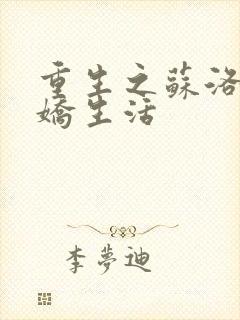 重生之蘇洛
嬌生活
李夢迪